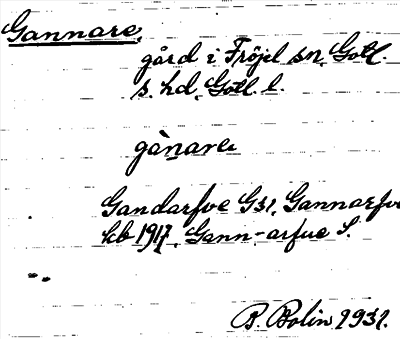 Gannare,
gård i Fröjel sn, Gotl.
s. hd, Gotl. l.
gànare
Gandarfve G31, Gannarfve
kb 1917, Gann-arfue S.
B. Bolin 1931.